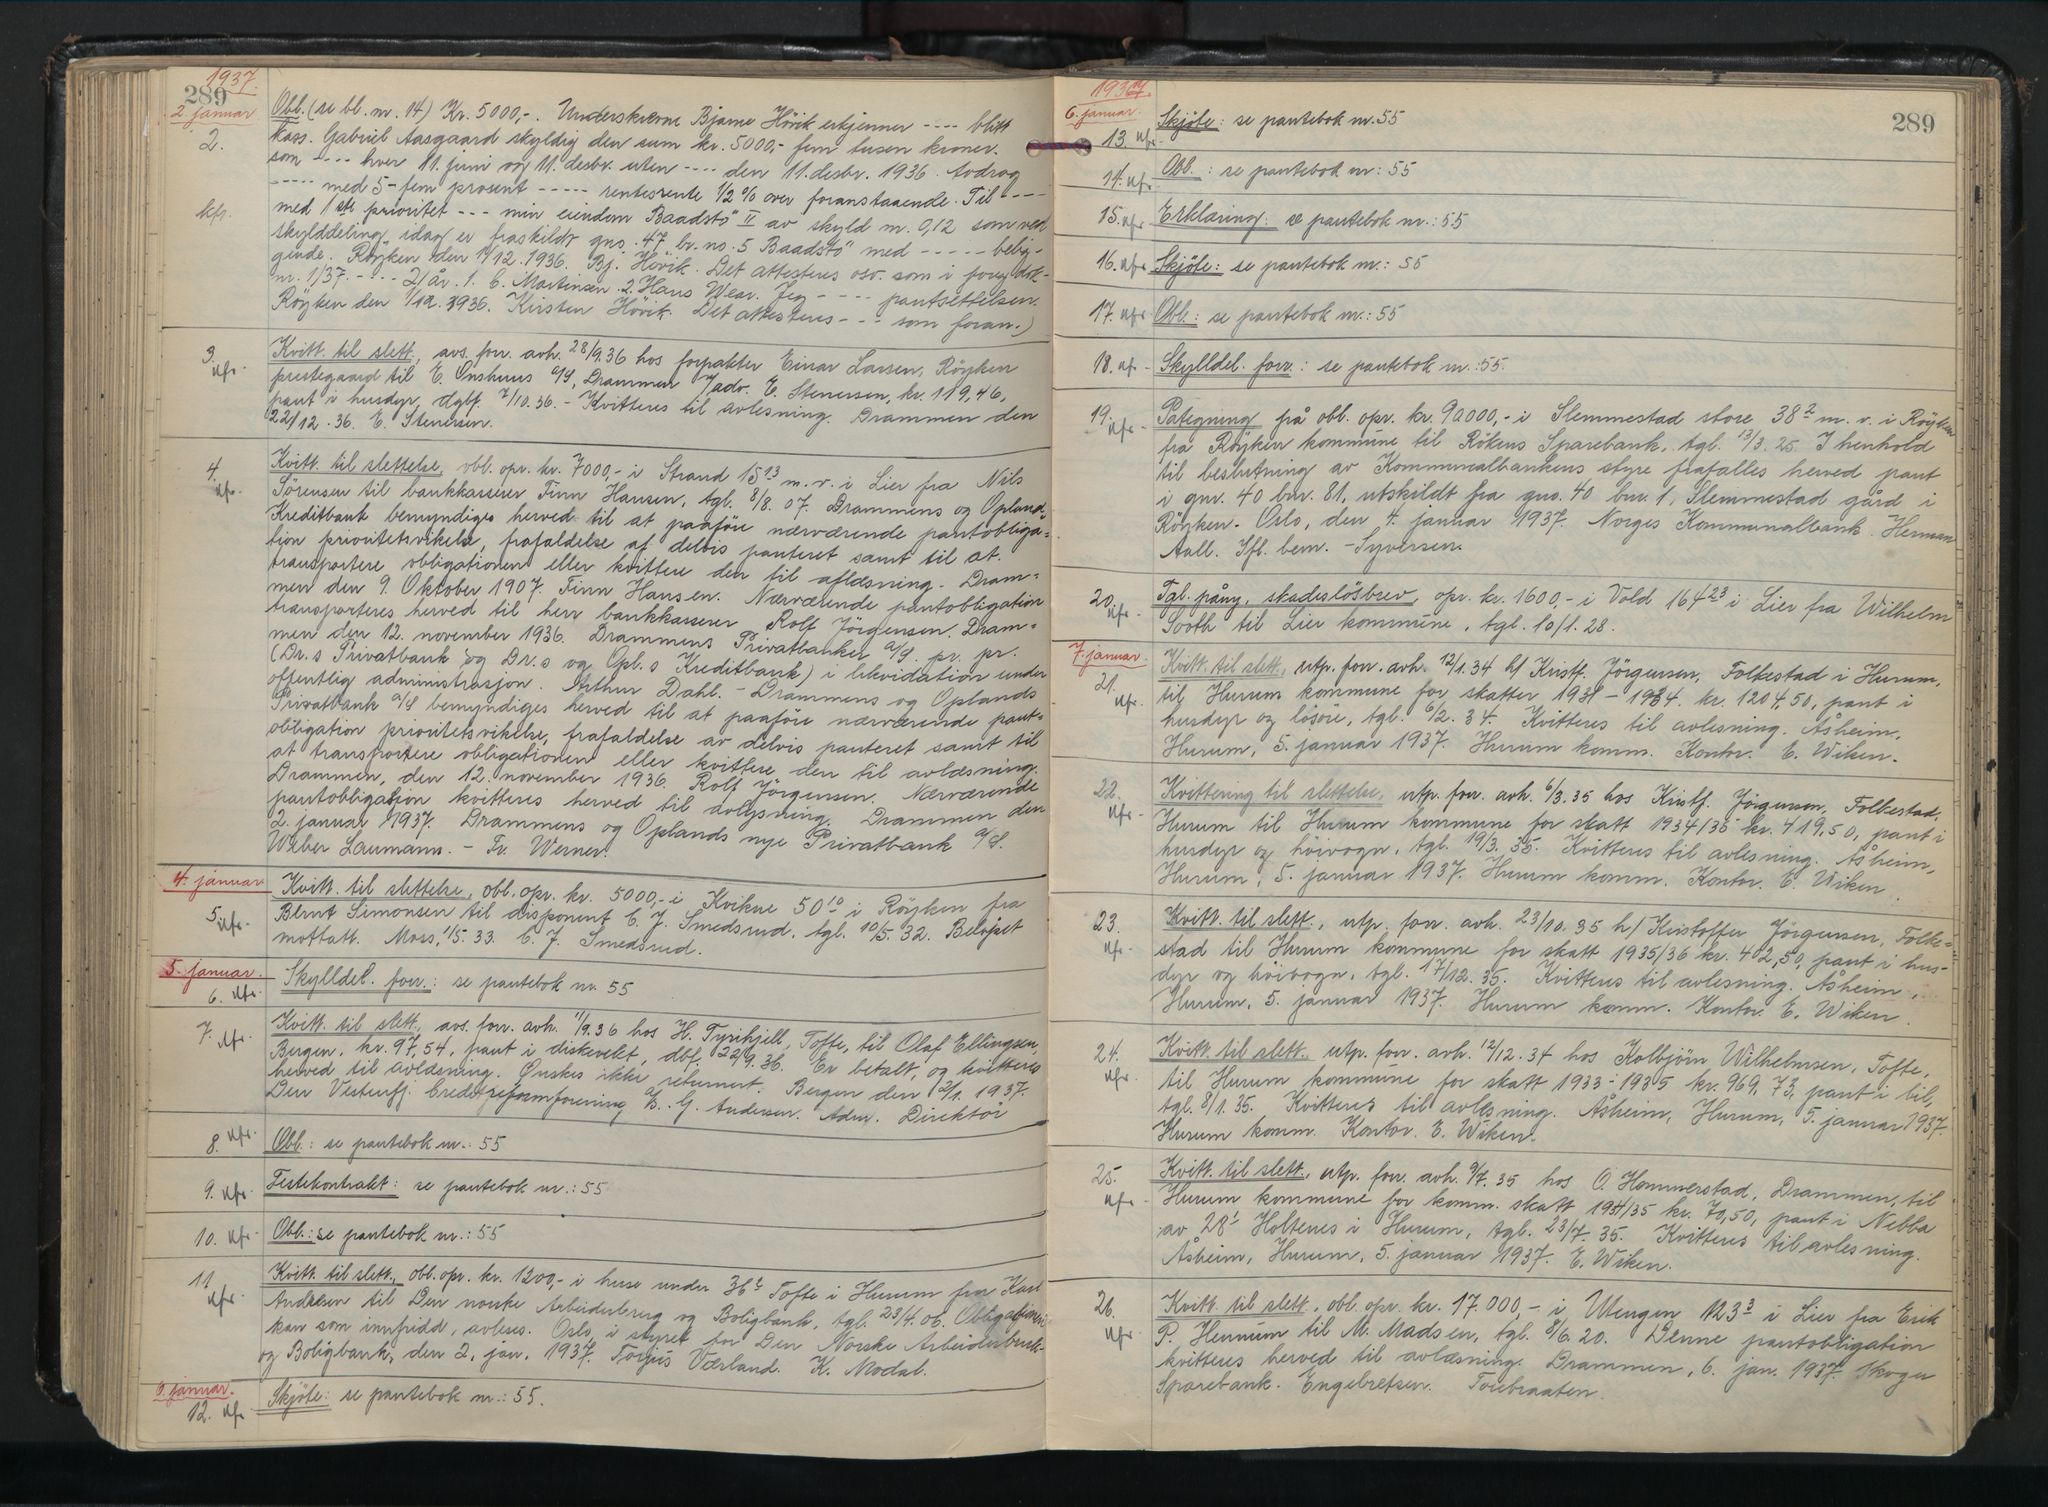 1937.
289
2 januar
2. Obl. (se bl. nr. 14) Kr. 5000,-. Underskrevne Bjarne Hövik erkjenner ---- blitt
kass. Gabriel Aasgaard skyldig den sum kr. 5000,- fem tusen kroner.
som ---- hver 11. juni og 11. desbr. uten ---- den 11. desbr. 1936. Avdrag
kfr. ----- med 5-fem prosent ----- rentesrente 1/2 % over foranstaaende. Til ---
med 1ste prioritet --- min eiendom "Baadstö" II av skyld m. 0,12 som ved
skylddeling idag er fraskildt gno. 47 br. no. 5 "Baadstö" med ----- belig-
gende. Röyken den 1/12. 1936. Bj. Hövik. Det attesteres osv. som i foreg. dok.
nr. 1/37. ---- 21 år. 1. C. Martinsen. 2. Hans Wear. Jeg ---- pantsettelsen.
Röyken den 1/12. 1936. Kirsten Hövik. Det attesteres --- som foran.)
3. kfr. Kvitt. til slett., avs. forr. avh. 28/9.36 hos forpakter Einar Larsen, Röyken
prestegaard til E. Onshuus A/S, Drammen v/adv. E. Stenersen, kr. 119,46,
pant i husdyr, dglf. 7/10.36. - Kvitteres til avlesning. Drammen den
22/12.36. E. Stenersen.
4. kfr. Kvitt. til slettelse, obl. opr. kr. 7000,- i Strand 15 13 m. v. i Lier fra Nils
Sørensen til bankkasserer Finn Hansen, tgl. 8/8.07. Drammens og Oplands
Kreditbank bemyndiges herved til at paaføre nærværende pantobliga=
tion prioritetsvikelse, frafaldelse af delvis panteret samt til at
transportere obligationen eller kvittere den til aflæsning. Dram=
men den 9. Oktober 1907. Finn Hansen. Nærværende pantobligation
transporteres herved til herr bankkasserer Rolf Jörgensen. Dram=
men den 12. november 1936. Drammens Privatbanker A/S. pr. pr.
(Dr.s Privatbank og Dr.s og Opl.s Kreditbank) i likvidation under
offentlig administrasjon. Arthur Dahl. - Drammens og Oplands
Privatbank A/S bemyndiges herved til at paaföre nærværende pant=
obligation prioritetsvikelse, frafaldelse av delvis panteret samt til
at transportere obligationen eller kvittere den til avlæsning.
Drammen, den 12. november 1936. Rolf Jörgensen. Nærværende
pantobligation kvitteres herved til avlysning. Drammen den
2. januar 1937. Drammens og Oplands nye Privatbank A/S.
Wilber Laumann. - Fr. Werner.
4. januar
5. kfr. Kvitt. til slettelse, obl. opr. kr. 5000,- i Kvikne 50 10 i Röyken fra
Bernt Simonsen til disponent C. J. Smedsrud, tgl. 10/5.32. Belöpet
mottatt. Moss, 1/5.33. C. J. Smedsrud.
5. januar.
6. kfr. Skylddel. forr.: se pantebok nr. 55
7. kfr. Kvitt. til slett., avs. forr. avh. 11/9.36 hos H. Tyrihjell, Tofte, til Olaf Ellingsen,
Bergen, kr. 97,54, pant i diskevekt, dbf. 22/9.36. Er betalt, og kvitteres
herved til avlæsning. Ønskes ikke returnert. Bergen den 2/1. 1937.
Den Vestenfj. Credetreformforening B. G. Andersen. Adm. Direktör
8. kfr. Obl.: se pantebok nr.: 55
9. kfr. Festekontrakt: se pantebok nr.: 55
10. kfr. Obl.: se pantebok nr.: 55
11. kfr. Kvitt. til slett., obl. opr. kr. 1200,- i huse under 36 1 Tofte i Hurum fra Karl
Andresen til Den norske Arbeiderbrug og Boligbank, tgl. 23/4.06. Obligationen
kan som innfridd, avleses. Oslo, i styret for Den Norske Arbeiderbruk-
og Boligbank, den 2. jan. 1937. Torjus Værland. K. Modal.
6. januar.
12. kfr. Skjöte: se pantebok nr.: 55.
1937.
289
6. januar.
13. kfr. Skjöte: se pantebok nr. 55
14. kfr. Obl.: se pantebok nr.: 55
15. kfr. Erklæring: se pantebok nr.: 55
16. kfr. Skjöte: se pantebok nr.: 55
17. kfr. Obl.: se pantebok nr.: 55
18. kfr. Skylddel. forr.: se pantebok nr.: 55.
19. kfr. Påtegning på obl. opr. kr. 90000,- i Slemmestad store 38 2 m. v. i Röyken
fra Röyken kommune til Rökens Sparebank, tgl. 13/3.25. I henhold
til beslutning av Kommunalbankens styre frafalles herved pant
i gnr. 40 bnr. 81, utskildt fra gno. 40 bnr. 1, Slemmestad gård i
Röyken. Oslo, den 4. januar 1937. Norges Kommunalbank. Herman
Aall. Ifl. bem. - Syversen.
20. kfr. Tgl. påny, skadeslösbrev, opr. kr. 1600,- i Vold 164 23 i Lier fra Wilhelm
Sooth til Lier kommune, tgl. 10/1.28.
7. januar.
21. kfr. Kvitt. til slett., utp. forr. avh. 12/1.34 h/ Kristf. Jörgensen, Folkestad i Hurum,
til Hurum kommune for skatter 1931 - 1934. kr. 1204,50, pant i
husdyr og lösöre, tgl. 6/2.34. Kvitteres til avlesning. Åsheim,
Hurum, 5. januar 1937. Hurum komm. Kontor. E. Wiken.
22. kfr. Kvittering til slettelse, utp. forr. avh. 6/3.35 hos Kristf. Jörgensen, Folkestad,
Hurum til Hurum kommune for skatt 1934/35 kr. 419,50, pant i
husdyr og höivogn, tgl. 19/3.35. Kvitteres til avlesning. Åsheim,
Hurum, 5. januar 1937. Hurum komm. Kontor. E. Wiken.
23. kfr. Kvitt. til slett., utp. forr. avh. 23/10.35 h/ Kristoffer Jörgensen, Folke=
stad til Hurum kommune for skatt 1935/36 kr. 402,50, pant i hus-
dyr og höivogn, tgl. 17/12.35. Kvitteres til avlesning. Åsheim,
Hurum, 5. januar 1937. Hurum komm. Kontor. E. Wiken.
24. kfr. Kvitt. til slett., utp. forr. avh. 12/12.34 hos Kolbjörn Wilhelmsen, Tofte,
til Hurum kommune for skatt 1933-1935 kr. 969,73, pant i bil,
tgl. 8/1.35. Kvitteres til avlesning. Åsheim, Hurum, 5. januar 1937.
Hurum komm. Kontor. E. Wiken.
25. kfr. Kvitt. til slett., utp. forr. avh. 9/7.35 hos O. Hommerstad, Drammen, til
Hurum kommune for komm. skatt 1934/35 kr. 70,50, pant i Nebba
av 28 1 Holtenes i Hurum, tgl. 23/7.35. Kvitteres til avlesning.
Åsheim, Hurum, 5. januar 1937. E. Wiken.
26. kfr. Kvitt. til slett., obl. opr. kr. 17.000,- i Utengen 123 3 i Lier fra Erik
P. Hennum til M. Madsen, tgl. 8/6.20. Denne pantobligation
kvitteres herved til avlæsning. Drammen, 6. jan. 1937. Skoger
Sparebank. Engebretsen. Toiebraaten.